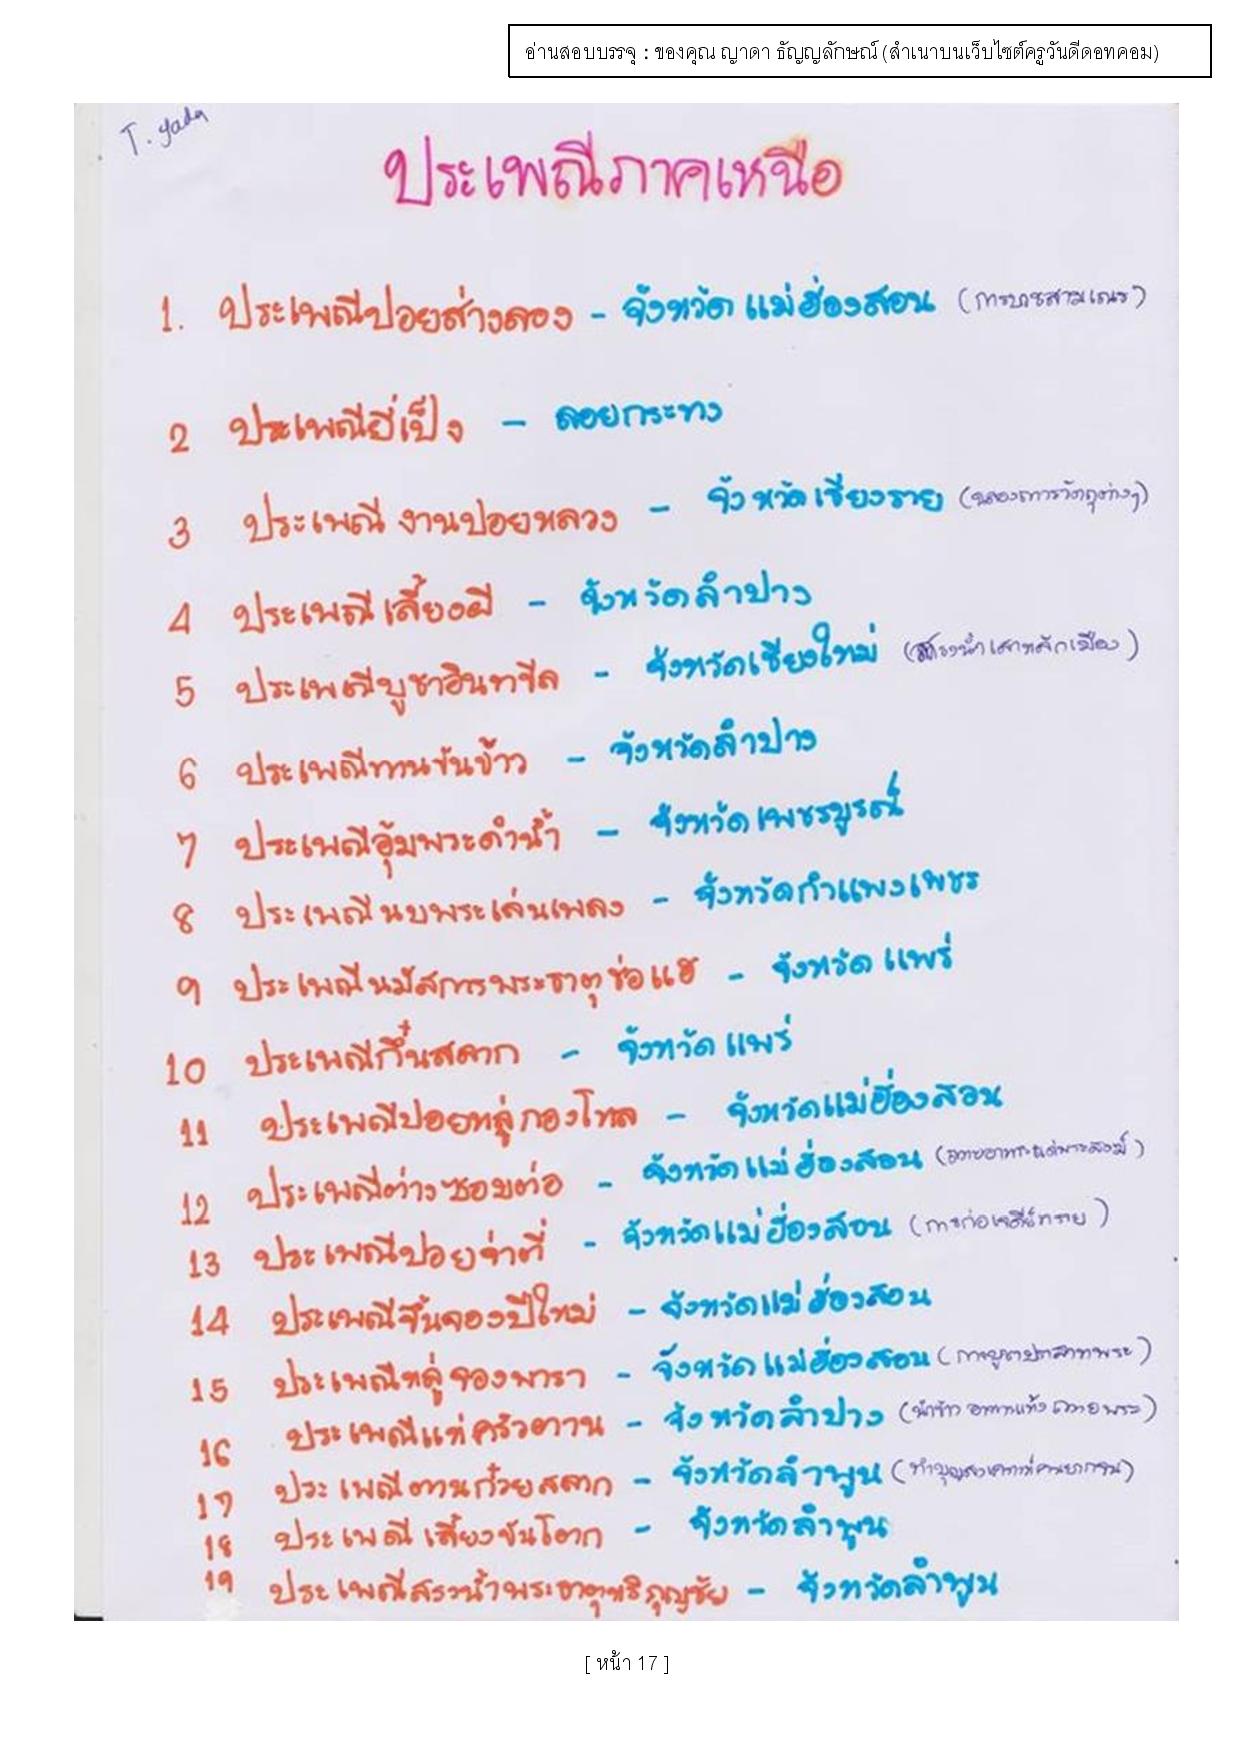 อ่านสอบบรรจุ : ของคุณ ญาดา ธัญญลักษณ์ (สำเนาบนเว็บไซต์ครูวันดีดอทคอม)
T. yada
ประเพณีภาคเหนือ
1. ประเพณีปอยส่างลอง - จังหวัดแม่ฮ่องสอน (การบวชสามเณร)
2 ประเพณียี่เป็ง - ลอยกระทง
3 ประเพณี งานปอยหลวง - จังหวัดเชียงราย (ฉลองถาวรวัตถุต่างๆ)
4 ประเพณีเลี้ยงผี - จังหวัดลำปาง
5 ประเพณีบูชาอินทขีล - จังหวัดเชียงใหม่ (สรงน้ำเสาหลักเมือง)
6 ประเพณีทานขันข้าว - จังหวัดลำปาง
7 ประเพณีอุ้มพระดำน้ำ - จังหวัดเพชรบูรณ์
8 ประเพณีนบพระเล่นเพลง - จังหวัดกำแพงเพชร
9 ประเพณีนมัสการพระธาตุช่อแฮ - จังหวัดแพร่
10 ประเพณีกิ๋นสลาก - จังหวัดแพร่
11 ประเพณีปอยหลู่กองโหล - จังหวัดแม่ฮ่องสอน
12 ประเพณีต่างซอมต่อ - จังหวัดแม่ฮ่องสอน (ถวายอาหารแด่พระสงฆ์)
13 ประเพณีปอยจ่าตี่ - จังหวัดแม่ฮ่องสอน (การก่อเจดีย์ทราย)
14 ประเพณีขึ้นจองปีใหม่ - จังหวัดแม่ฮ่องสอน
15 ประเพณีหลู่จองพารา - จังหวัดแม่ฮ่องสอน (การบูชาปราสาทพระ)
16 ประเพณีแห่ครัวตาน - จังหวัดลำปาง (นำข้าว อาหารแห้ง ถวายพระ)
17 ประเพณีตานก๋วยสลาก - จังหวัดลำพูน (ทำบุญสงเคราะห์คนยากจน)
18 ประเพณี เลี้ยงขันโตก - จังหวัดลำพูน
19 ประเพณีสรงน้ำพระธาตุหริภุญชัย - จังหวัดลำพูน
[ หน้า 17 ]